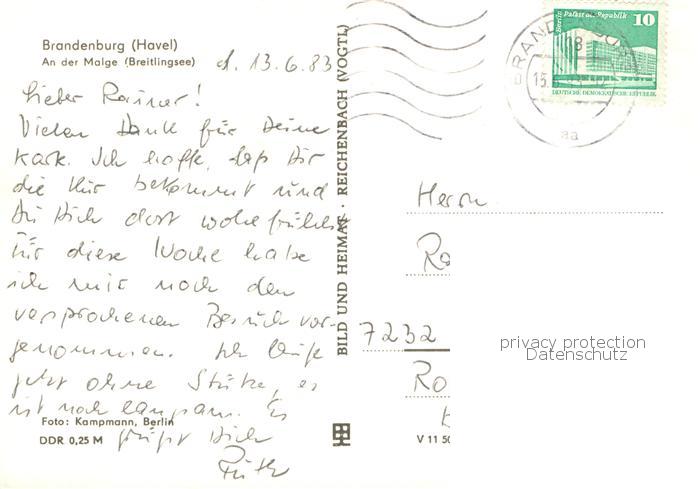 Brandenburg (Havel)
An der Malge (Breitlingsee)
d. 13.6.83
Lieber Rainer!
Vielen Dank für Deine
Karte. Ich hoffe, daß Dir
die Kur bekommt und
Du Dich dort wohlfühlst
Für diese Woche habe
ich mir noch den
versprochenen Besuch vor-
genommen. Ich laufe
jetzt ohne Stütze, es
ist noch langsam. Es
grüßt Dich
Ruth
Foto: Kampmann, Berlin
DDR 0,25 M
BILD UND HEIMAT · REICHENBACH (VOGTL)
V 11 50
Berlin Palast der Republik 10
DEUTSCHE DEMOKRATISCHE REPUBLIK
BRANDENBURG
15.
18
aa
Herrn
Ra
7232
Ro
privacy protection
Datenschutz